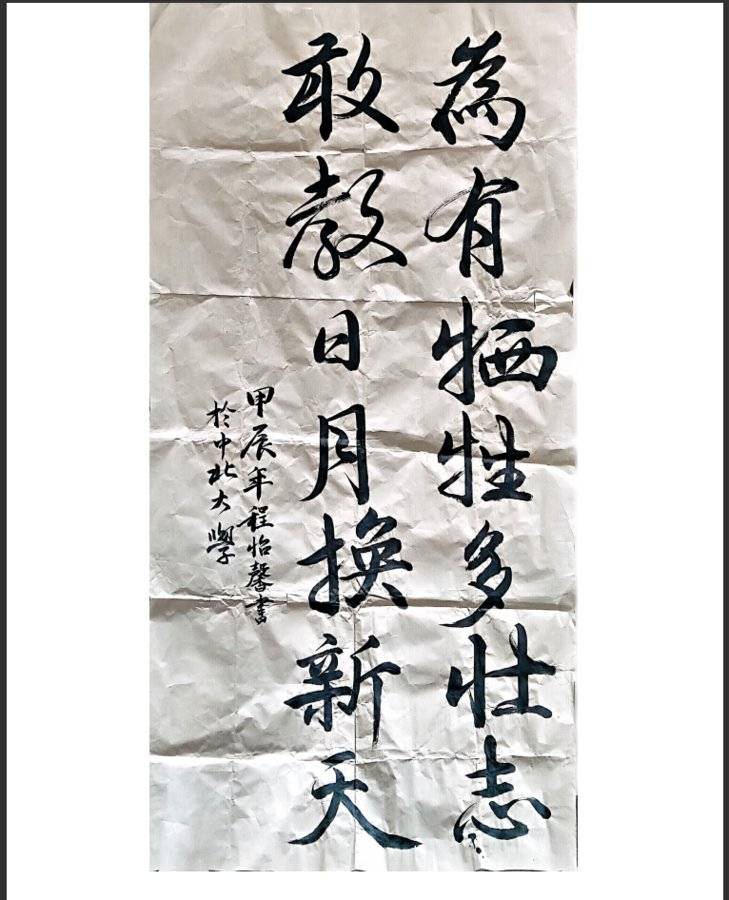 為有牺牲多壮志
敢教日月換新天
甲辰年程怡馨書
於中北大學